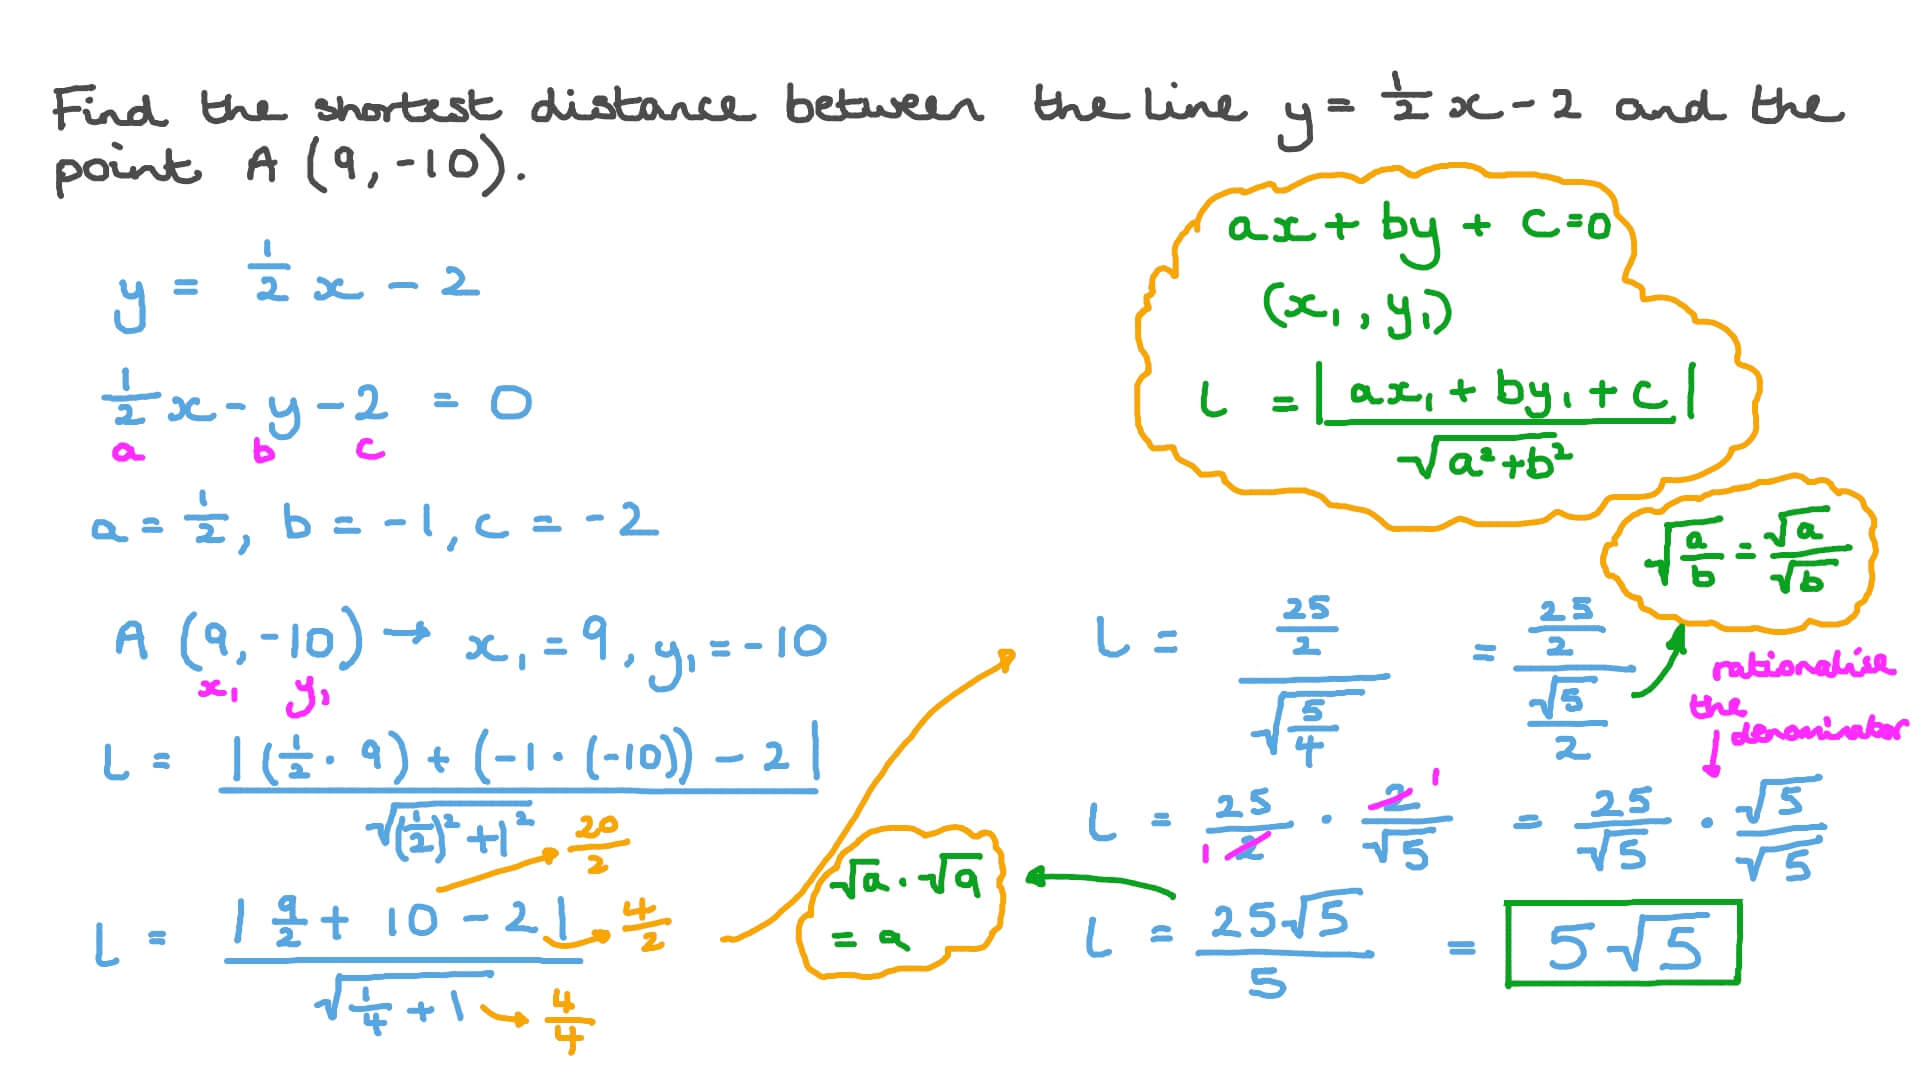 Find the shortest distance between the line y = 1/2 x - 2 and the
point A (9, -10).
y = 1/2 x - 2
1/2 x - y - 2 = 0
a b c
a = 1/2, b = -1, c = -2
A (9, -10) → x₁ = 9, y₁ = -10
x₁ y₁
L = |(1/2 · 9) + (-1 · (-10)) - 2| / √((1/2)² + 1²)
20/2
L = |9/2 + 10 - 2| / √(1/4 + 1)
4/2
4/4
ax + by + c = 0
(x₁, y₁)
L = |ax₁ + by₁ + c| / √(a² + b²)
√(a/b) = √a/√b
L = (25/2) / √(5/4) = (25/2) / (√5/2)
rationalise
the
denominator
L = 25/2 · 2/√5 = 25/√5 · √5/√5
1 1
√a · √a
= a
L = 25√5 / 5 = 5√5